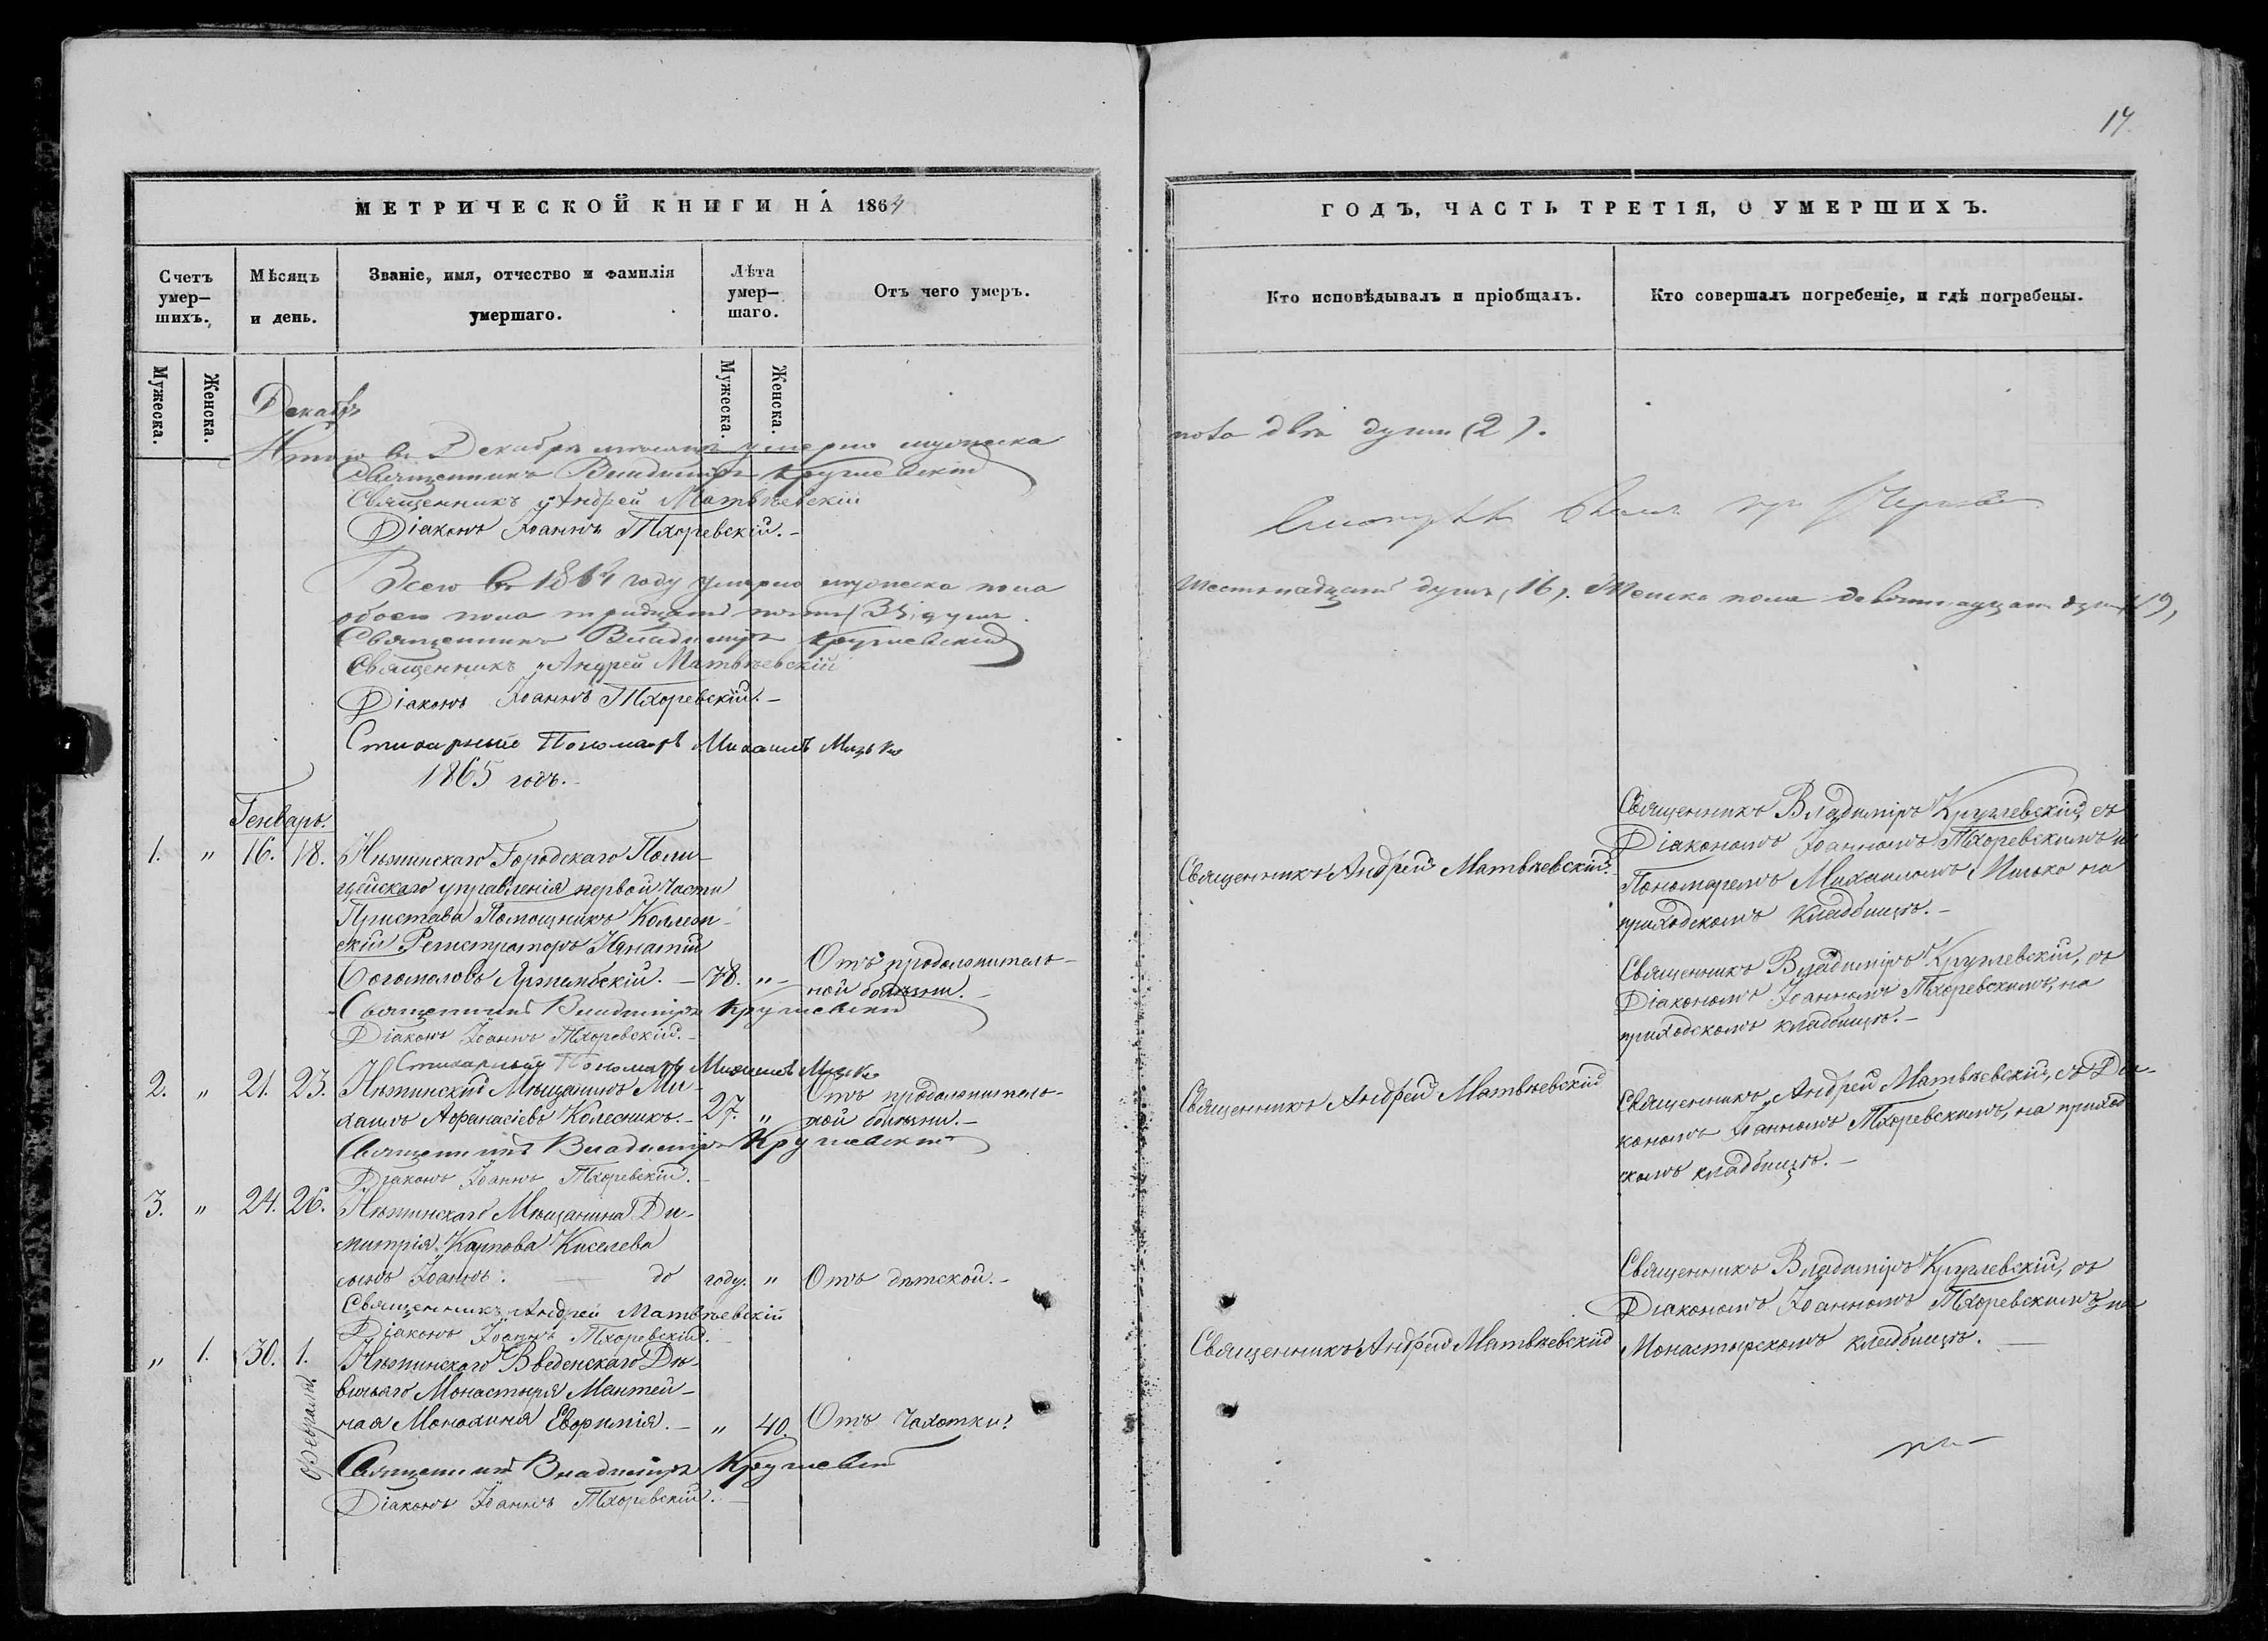 МЕТРИЧЕСКОЙ КНИГИ НА́ 1864
Счетъ умер-шихъ.
Мѣсяцъ и день.
Званіе, имя, отчество и фамилія умершаго.
Лѣта умер-шаго.
Отъ чего умеръ.
Мужеска.
Женска.
Мужеска.
Женска.
Декабрь
Итого въ Декабрѣ мѣсяцѣ умерло мужеска
Священникъ Владиміръ Круглевскій
Священникъ Андрей Матвѣевскій
Діаконъ Іоаннъ Тхоревскій.-
Всего въ 1864 году умерло мужеска пола
обоего пола тридцать пять (35) душъ.
Священникъ Владиміръ Круглевскій
Священникъ Андрей Матвѣевскій
Діаконъ Іоаннъ Тхоревскій.-
Стихарный Пономарь Михаилъ
1865 годъ.-
Генварь.
1. " 16. 18. Нѣжинскаго Городскаго Поли-
цейскаго управленія первой Части
Пристава Помощникъ Коллеж-
скій Регистраторъ Игнатій
Богомоловъ - 78. "- Отъ продолжитель-
ной болѣзни.-
Священникъ Владиміръ Круглевскій
Діаконъ Іоаннъ Тхоревскій.-
Стихарный Пономарь Михаилъ
2. " 21. 23. Нѣжинскій Мѣщанинъ Ми-
хаилъ Афанасіевъ Колесникъ.- 27. " Отъ продолжитель-
ной болѣзни.-
Священникъ Владиміръ Круглевскій
Діаконъ Іоаннъ Тхоревскій.
3. " 24. 26. Нѣжинскаго Мѣщанина Ди-
митрія Карпова Киселева
сынъ Іоаннъ. до году. " Отъ дѣтской.-
Священникъ Андрей Матвѣевскій
Діаконъ Іоаннъ Тхоревскій.-
" 1. 30. 1. Нѣжинскаго Введенскаго Дѣ-
вичьяго Монастыря Мантей-
ная Монахиня Евфимія.- " 40. Отъ Чахотки.
Февраля
Священникъ Владиміръ Круглевскій
Діаконъ Іоаннъ Тхоревскій.-
14.
ГОДЪ, ЧАСТЬ ТРЕТІЯ, О УМЕРШИХЪ.
Кто исповѣдывалъ и пріобщалъ.
Кто совершалъ погребеніе, и гдѣ погребены.
пола двѣ души (2).
шестьнадцать душъ (16). Женска пола девятнадцать душъ (19)
Священникъ Андрей Матвѣевскій.
Священникъ Владиміръ Круглевскій, съ
Діакономъ Іоанномъ Тхоревскимъ и
Пономаремъ Михаиломъ на
приходскомъ кладбищѣ.-
Священникъ Владиміръ Круглевскій, съ
Діакономъ Іоанномъ Тхоревскимъ, на
приходскомъ кладбищѣ.-
Священникъ Андрей Матвѣевскій
Священникъ Андрей Матвѣевскій, съ Діа-
кономъ Іоанномъ Тхоревскимъ, на приход
скомъ кладбищѣ.-
Священникъ Владиміръ Круглевскій, съ
Діакономъ Іоанномъ Тхоревскимъ, на
Священникъ Андрей Матвѣевскій
Монастырскомъ кладбищѣ.